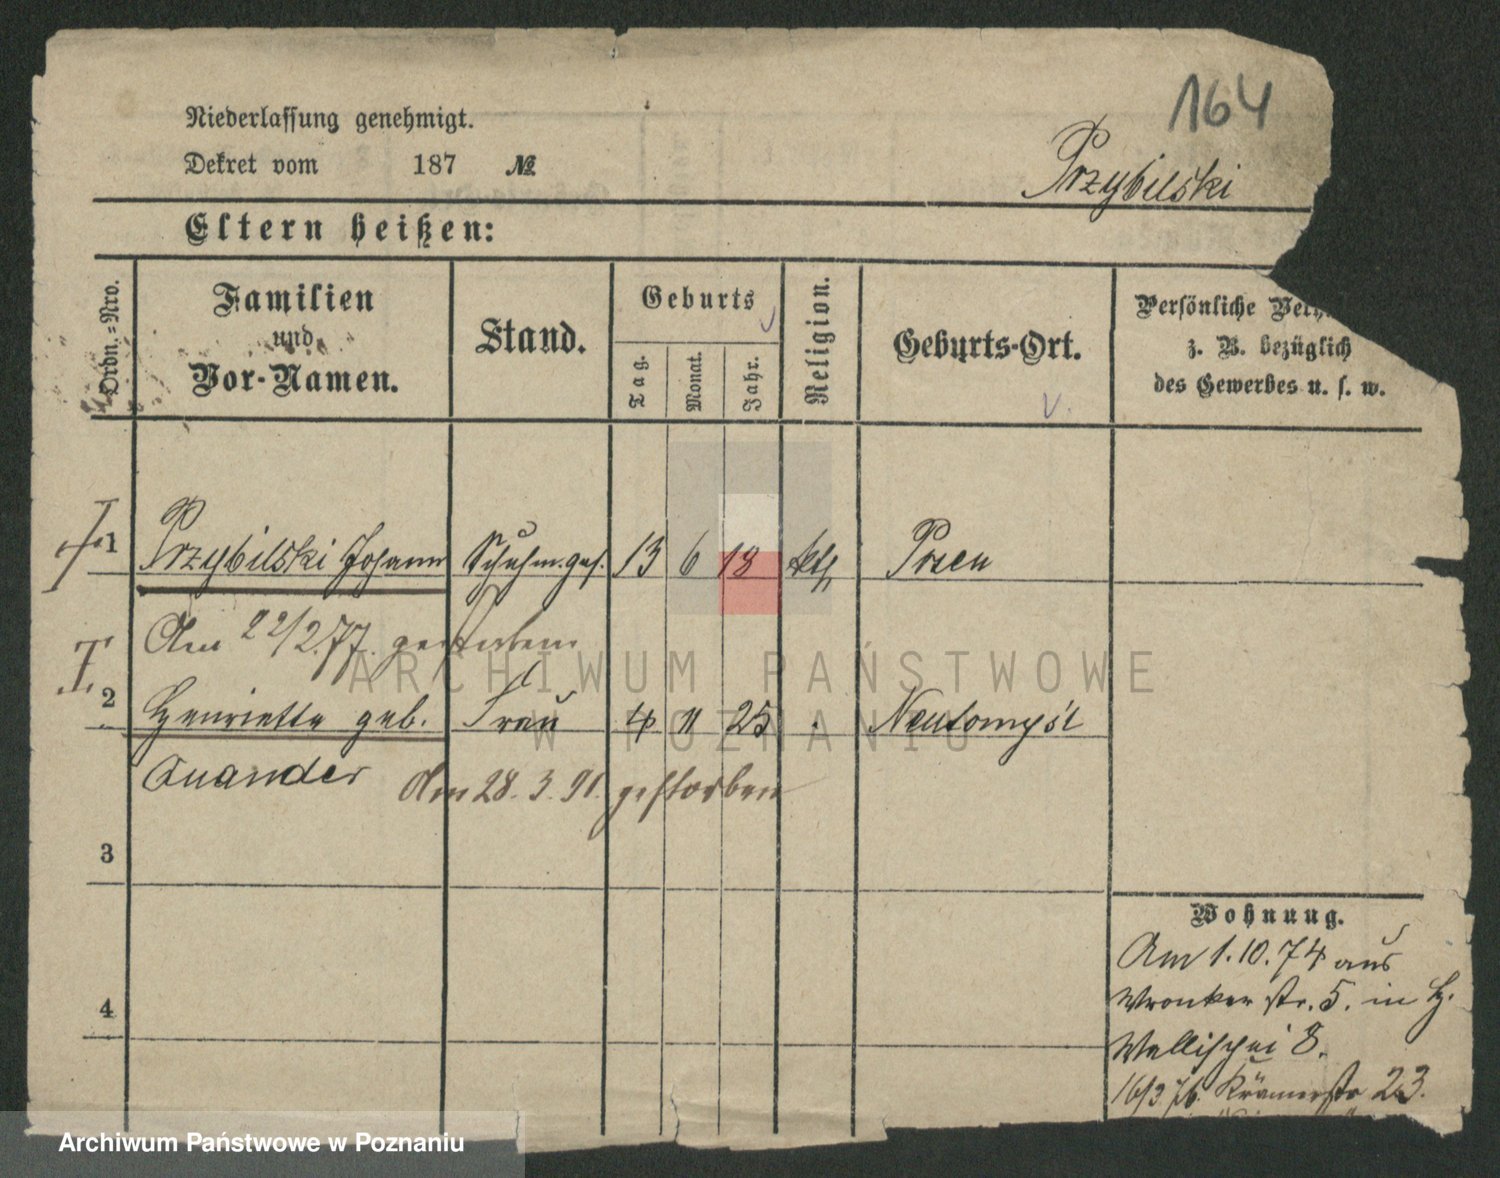 164
Niederlassung genehmigt.
Dekret vom 187 №
Przybilski
Eltern heißen:
Ordn.=Nro.
Familien und Vor-Namen.
Stand.
Geburts
Tag.
Monat.
Jahr.
Religion.
Geburts-Ort.
Persönliche
z. B. bezüglich
des Gewerbes u. s. w.
1 Przybilski Johann Schuhm.ges. 13 6 18 kth
Am 22/2.77. gestorben
2 Henriette geb. Frau 4 11 25 Neutomyśl
Quander Am 28.3.91. gestorben
3
4
Wohnung.
Am 1.10.74 aus
Wronker str. 5. in H.
Wallischei 8.
16/3 76. Krämerstr 23.
ARCHIWUM PAŃSTWOWE
W POZNANIU
Archiwum Państwowe w Poznaniu